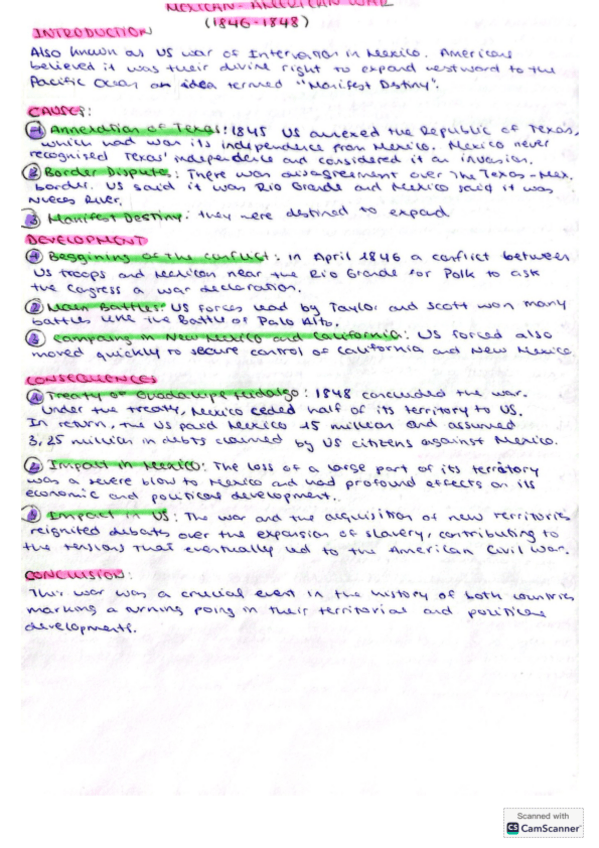 MEXICAN-AMERICAN WAR
(1846-1848)
INTRODUCTION
Also known as US war of Intervention in Mexico. Americans
believed it was their divine right to expand westward to the
Pacific Ocean an idea termed "Manifest Destiny".
CAUSES:
1 Annexation of Texas: 1845 US annexed the Republic of Texas,
which had won its independence from Mexico. Mexico never
recognised Texas' independence and considered it an invasion.
2 Border Dispute: There was disagreement over the Texas-Mex.
border. US said it was Rio Grande and Mexico said it was
Nueces River.
3 Manifest Destiny: they were destined to expand
DEVELOPMENT
1 Beggining of the conflict: in April 1846 a conflict between
US troops and Mexican near the Rio Grande for Polk to ask
the Congress a war declaration.
2 Main Battles: US forces lead by Taylor and Scott won many
battles like the Battle of Palo Alto.
3 Campaing in New Mexico and California: US forced also
moved quickly to secure control of California and New Mexico
CONSEQUENCES
1 Treaty of Guadalupe Hidalgo: 1848 concluded the war.
Under the treaty, Mexico ceded half of its territory to US.
In return, the US paid Mexico 15 million and assumed
3,25 million in debts claimed by US citizens against Mexico.
2 Impact in Mexico: The loss of a large part of its territory
was a severe blow to Mexico and had profound effects on its
economic and political development.
3 Impact in US: The war and the adquisition of new territories
reignited debates over the expansion of slavery, contributing to
the tensions that eventually led to the American Civil War.
CONCLUISION:
This war was a crucial event in the history of both countries
marking a turning poing in their territorial and political
developments.
Scanned with
CS CamScanner